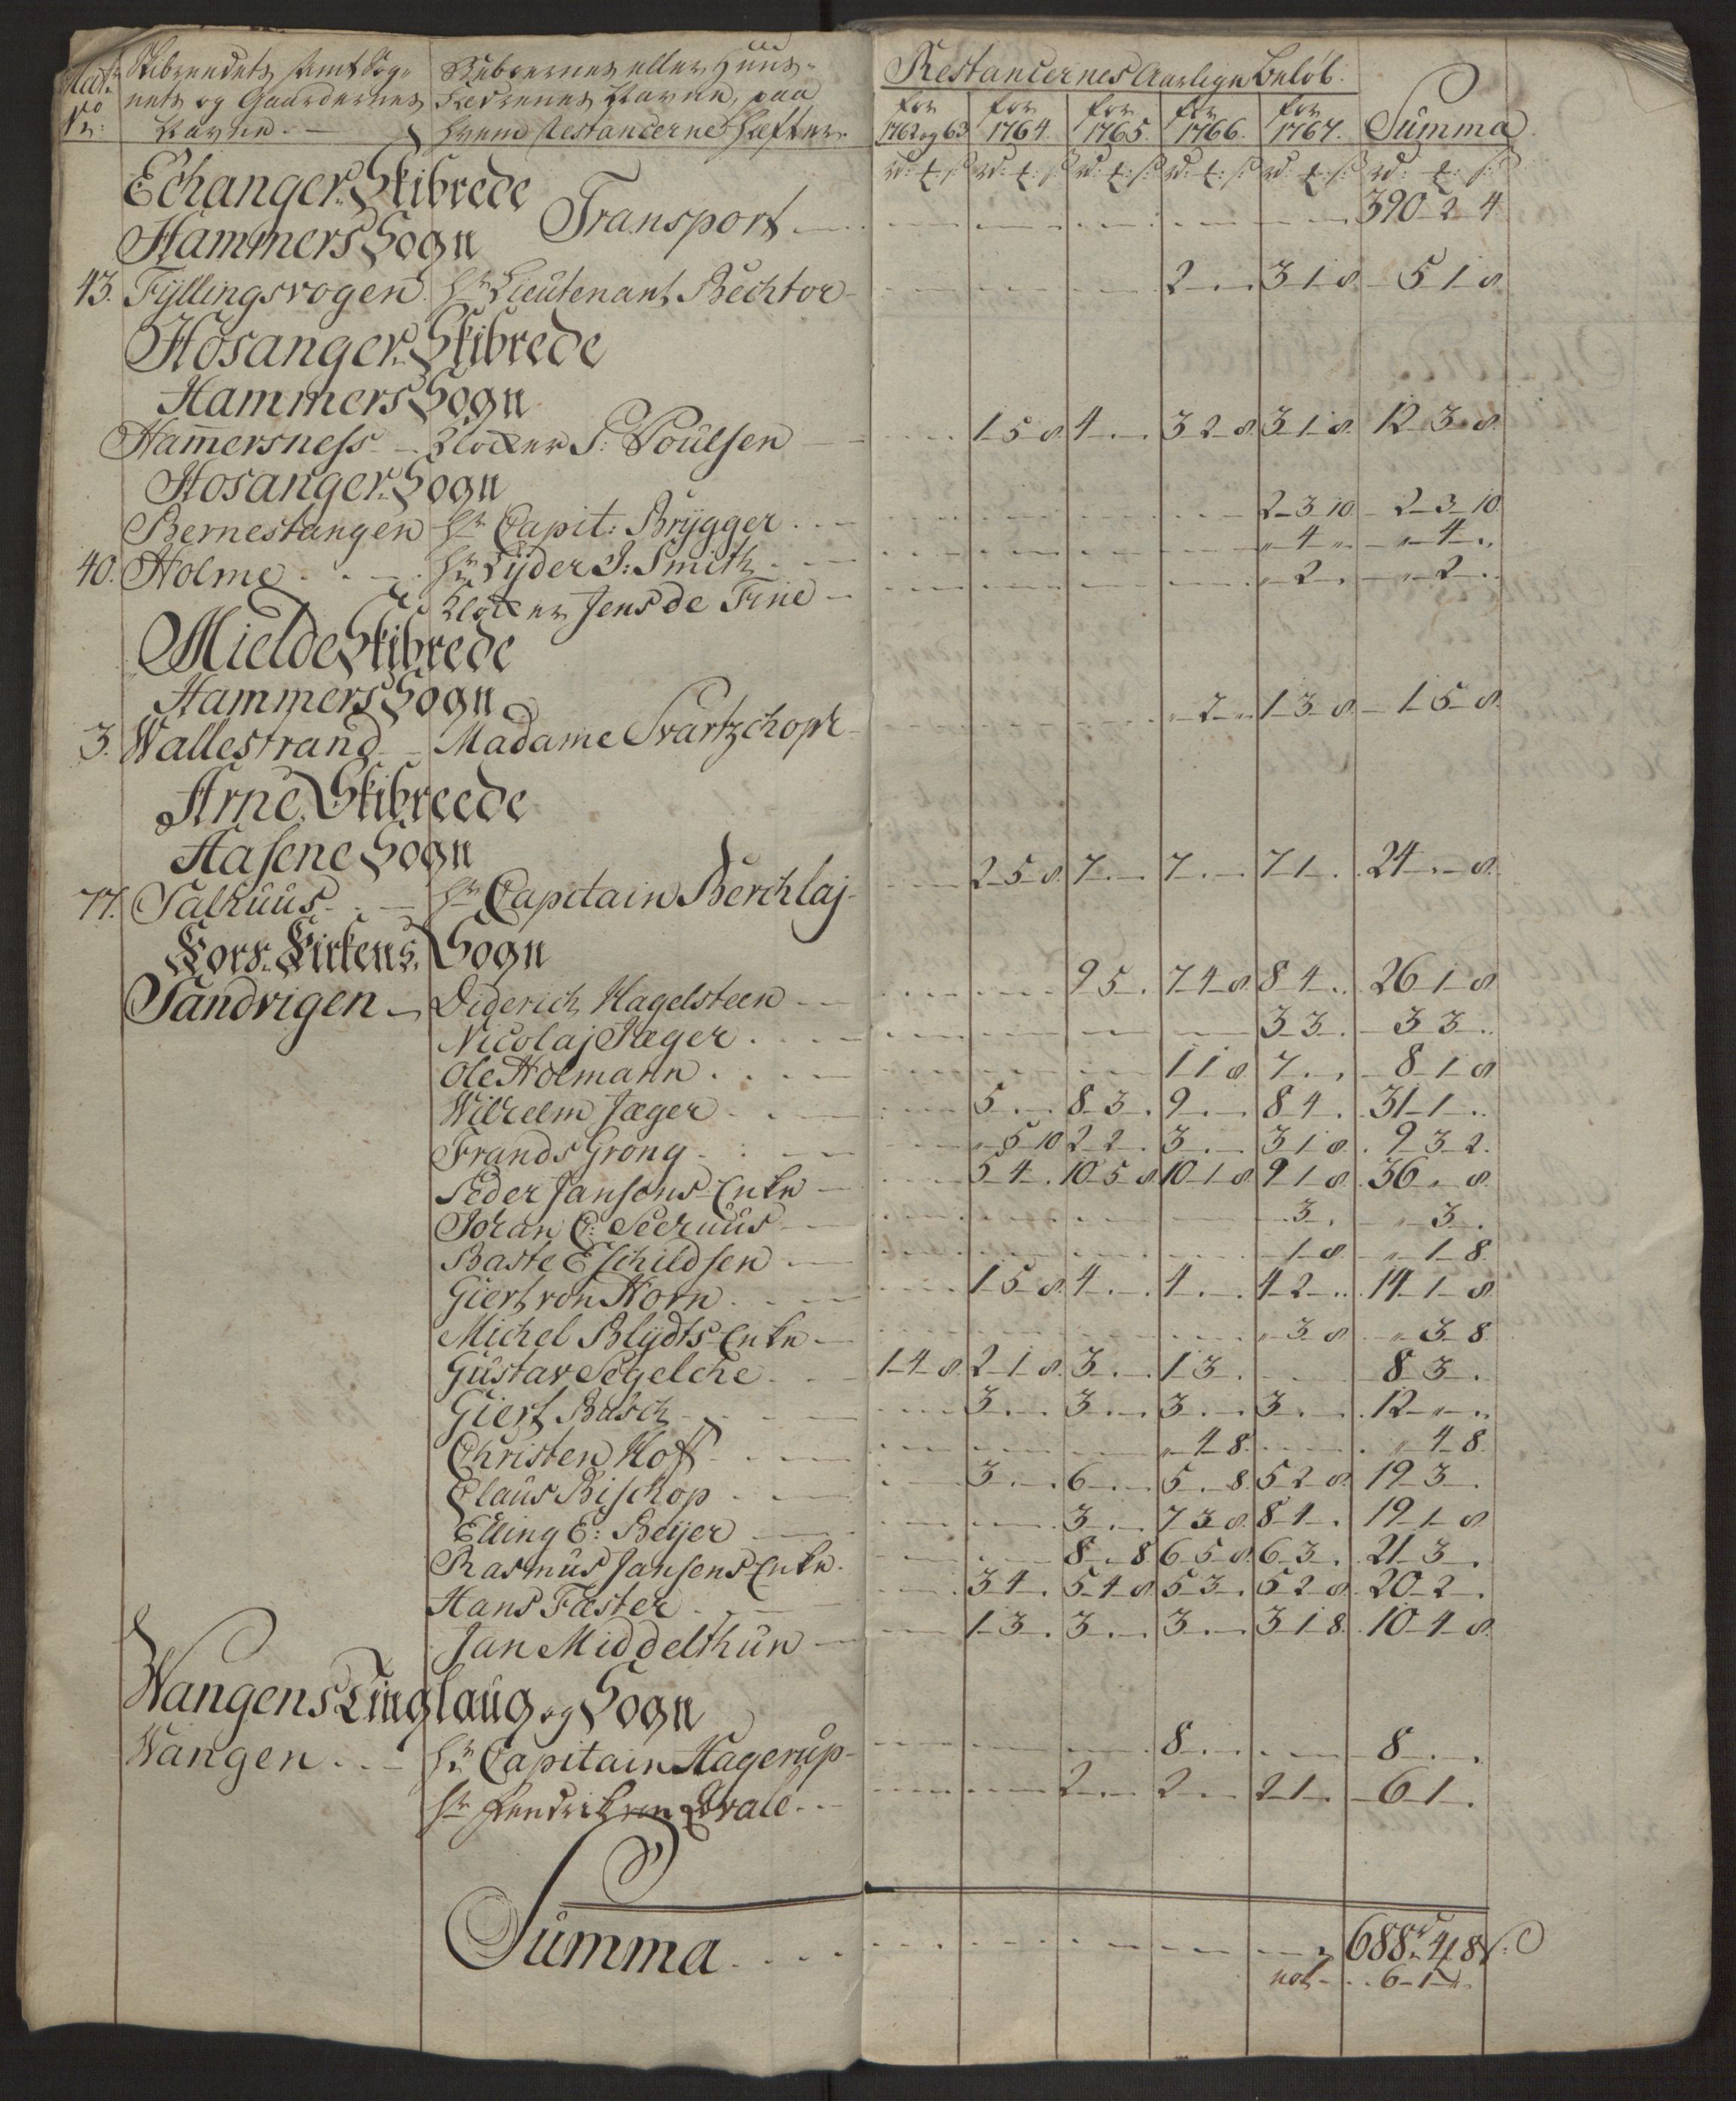 Matr: No Skibreedets samt Sognets og Gaardernes Navne. Beboernes eller Huus-Fædrenes Navne, paa hvem Restancerne hæfter. Restancernes Aarlige Beløb.
for 1762 og 63 for 1764. for 1765. for 1766. for 1767. Summa
rd: ₻: ß rd: ₻: ß rd: ₻: ß: rd: ₻: ß: rd: ₻: ß: rd: ₻: ß:
Echanger Skibrede
Hammers Sogn Transport 390 2 4
43. Fyllingsvogen Hr Lieutenant Bechtor 2 3 1 8 5 1 8
Hosanger Skibrede
Hammers Sogn
Hamersness Klocker P: Poulsen 1 5 8 4 3 2 8 3 1 8 12 3 8
Hosanger Sogn
Bernestangen Hr Capit: Brygger 2 3 10 2 3 10
40. Holme Hr Lyder S: Smith " 4 " " 4 "
Klocker Jens de Fine " 2 " 2
Mielde Skibrede
Hammers Sogn
3. Wallestrand Madame Svartzchopf " 2 " 1 3 8 1 5 8
Arne Skibreede
Haasene Sogn
77. Salhuus Hr Capitain Berchlaj 2 5 8 7 7 7 1 24 " 8
Kors Kirkens Sogn
Sandvigen Diderich Hagelsteen 9 5 7 4 8 8 4 26 1 8
Nicolaj Jæger 3 3 3 3
Ole Holmann 1 1 8 7 8 1 8
Wilhelm Jæger 5 8 3 9 8 4 31 1
Frands Grong " 5 10 2 2 3 3 1 8 9 3 2
Peder Jansons Enke 5 4 10 5 8 10 1 8 9 1 8 36 " 8
Johan C: Seehuus 3 " 3
Baste Eschildsen 1 8 " 1 8
Giert von Horn 1 5 8 4 4 4 2 14 1 8
Michel Blydts Enke " 3 8 " 3 8
Gustav Segelche 1 4 8 2 1 8 3 1 3 8 3
Giert Busch 3 3 3 3 12 "
Christen Hoff " 4 8 " 4 8
Claus Bischop 3 6 5 " 8 5 2 8 19 3
Elling E: Beyer 3 7 3 8 8 4 19 1 8
Rasmus Jansens Enke 8 " 8 6 5 8 6 3 21 3
Hans Fæster 3 4 5 4 8 5 3 5 2 8 20 2
Jan Middelthun 1 3 3 3 3 1 8 10 4 8
Wangens Tinglaug og Sogn
Wangen Hr Capitain Hagerup 8 8
Hr Hendrich von Qvale 2 2 2 1 6 1
Summa 688 rd 4 ₻ 8 ß
not 6 1